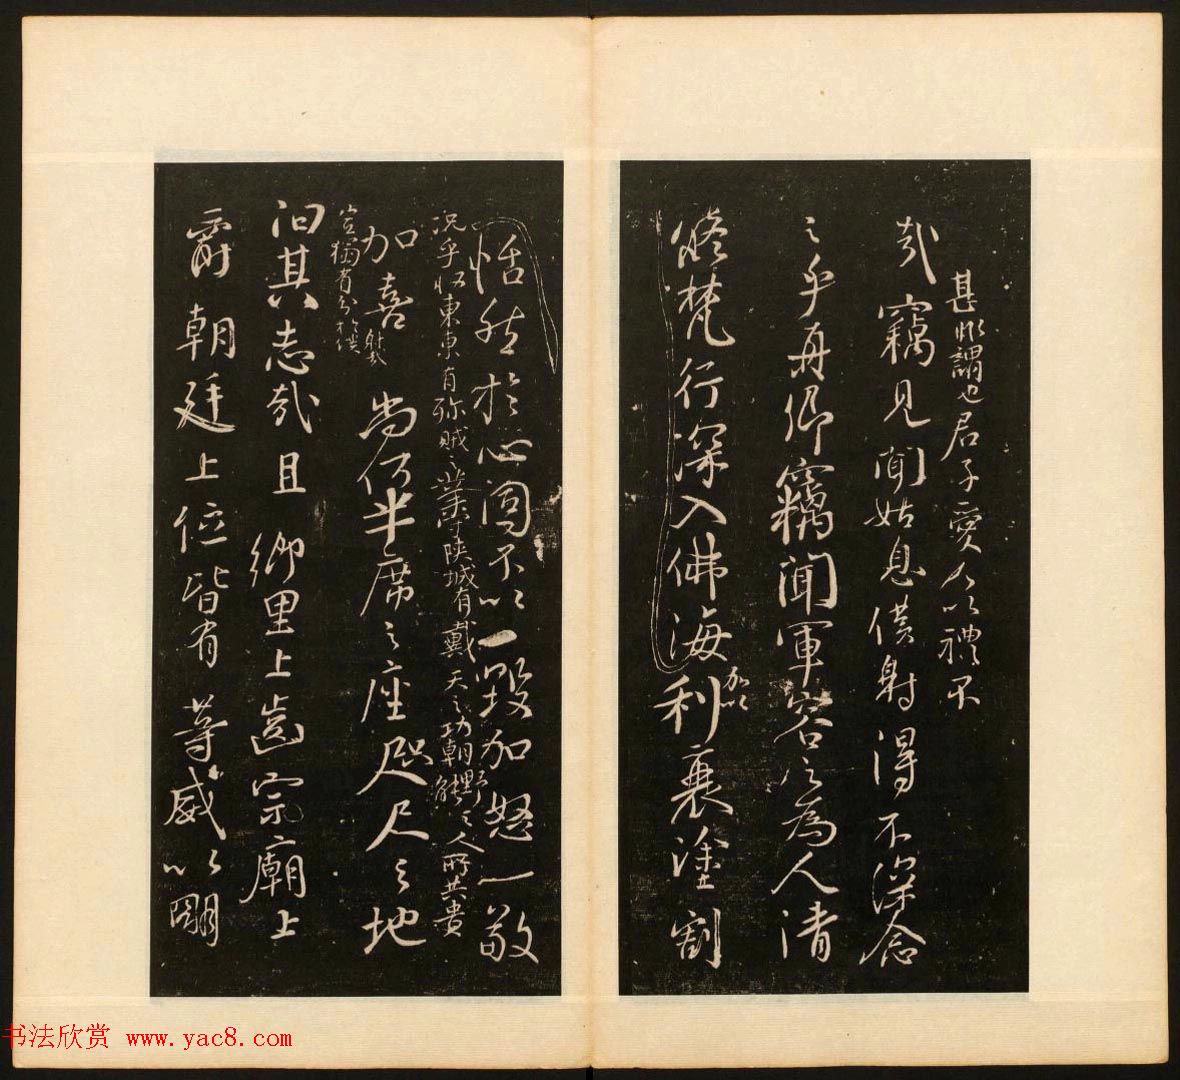 甚非謂也君子愛人以禮不
哉竊見聞姑息僕射得不深念
之乎真卿竊聞軍容之為人清
修梵行深入佛海加以利衰塗割
恬然於心固不以一毀加怒一敬
況乎收東京有殄賊之業守陝城有戴天之功朝野之人所共貴
加喜尚何半席之座咫尺之地
豈獨有分於僕
射哉
能
汩其志哉且鄉里上齒宗廟上
爵朝廷上位皆有等威以明
书法欣赏 www.yac8.com